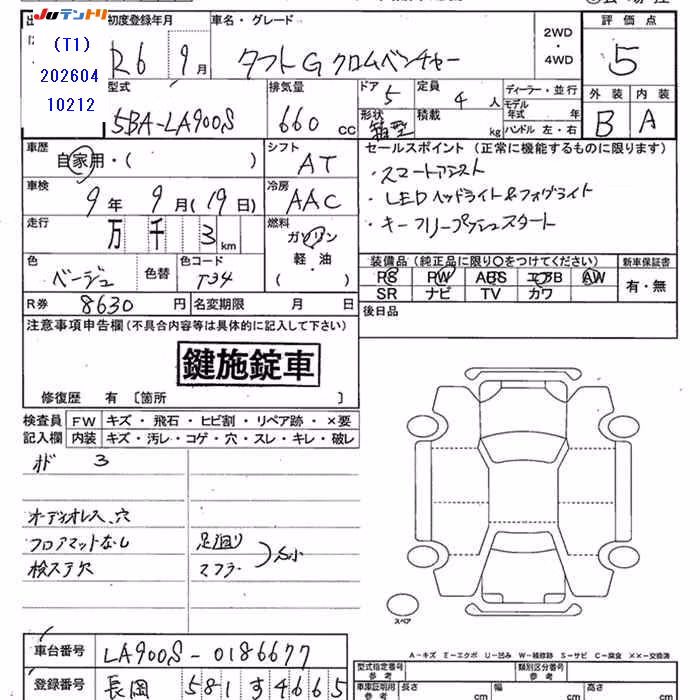 Juテントリ
(T1)
202604
10212
初度登録年月
R6 9月
車名・グレード
タフトG クロムベンチャー
2WD
・
4WD
評価点
5
外装 内装
B A
型式
5BA-LA900S
排気量
660 cc
ドア
5
定員
4 人
形状
箱型
積載
kg
ディーラー・並行
モデル
年式 年
ハンドル 左・右
車歴
自家用・( )
シフト
AT
車検
9年 9月(19日)
冷房
AAC
走行
万 千 3 km
燃料
ガソリン
軽・油
( )
色
ベージュ
色替
色コード
T34
R券 8630 円
名変期限 月 日
セールスポイント (正常に機能するものに限ります)
・スマートアシスト
・LEDヘッドライト&フォグライト
・キーフリープッシュスタート
装備品(純正品に限り○をつけてください)
新車保証書
PS PW ABS エアB AW
SR ナビ TV カワ
有・無
後日品
注意事項申告欄(不具合内容等は具体的に記入して下さい)
鍵施錠車
修復歴 有 〔箇所 〕
検査員
記入欄
FW キズ・飛石・ヒビ割・リペア跡・×要
内装 キズ・汚レ・コゲ・穴・スレ・キレ・破レ
オド 3
オーディオレス、穴
フロアマットなし
検ステ欠
足廻り
マフラー
スペア
A-キズ E-エクボ U-凹み W-補修跡 S-サビ C-腐食 ××-交換済
車台番号 LA900S-0186677
登録番号 長岡 581 す 4665
型式指定番号
参考
類別区分番号
参考
車庫証明用
参考
長さ cm
幅 cm
高さ cm